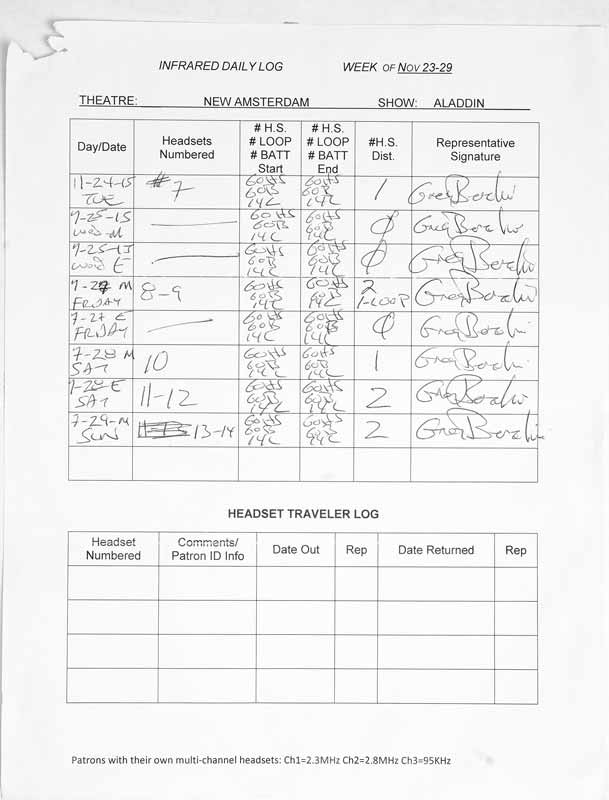 INFRARED DAILY LOG WEEK OF NOV 23-29
THEATRE: NEW AMSTERDAM SHOW: ALADDIN
Day/Date Headsets Numbered # H.S. # LOOP # BATT Start # H.S. # LOOP # BATT End #H.S. Dist. Representative Signature
11-24-15 TUE #7 60HS 60B 14L 60HS 60B 14L 1 Greg
-25-15 WED-M — 60HS 60B 14L 60HS 60B 14L Ø Greg
-25-15 WED E — 60HS 60B 14L 60HS 60B 14L Ø Greg
-27 M FRIDAY 8-9 60HS 60B 14L 60HS 60B 14L 2 1-LOOP Greg
-27 E FRIDAY — 60HS 60B 14L 60HS 60B 14L Ø Greg
-28 M SAT 10 60HS 60B 14L 60HS 60B 14L 1 Greg
-28-E SAT 11-12 60HS 60B 14L 60HS 60B 14L 2 Greg
-29-M SUN 13-14 60HS 60B 14L 60HS 60B 14L 2 Greg
HEADSET TRAVELER LOG
Headset Numbered Comments/ Patron ID Info Date Out Rep Date Returned Rep
Patrons with their own multi-channel headsets: Ch1=2.3MHz Ch2=2.8MHz Ch3=95KHz